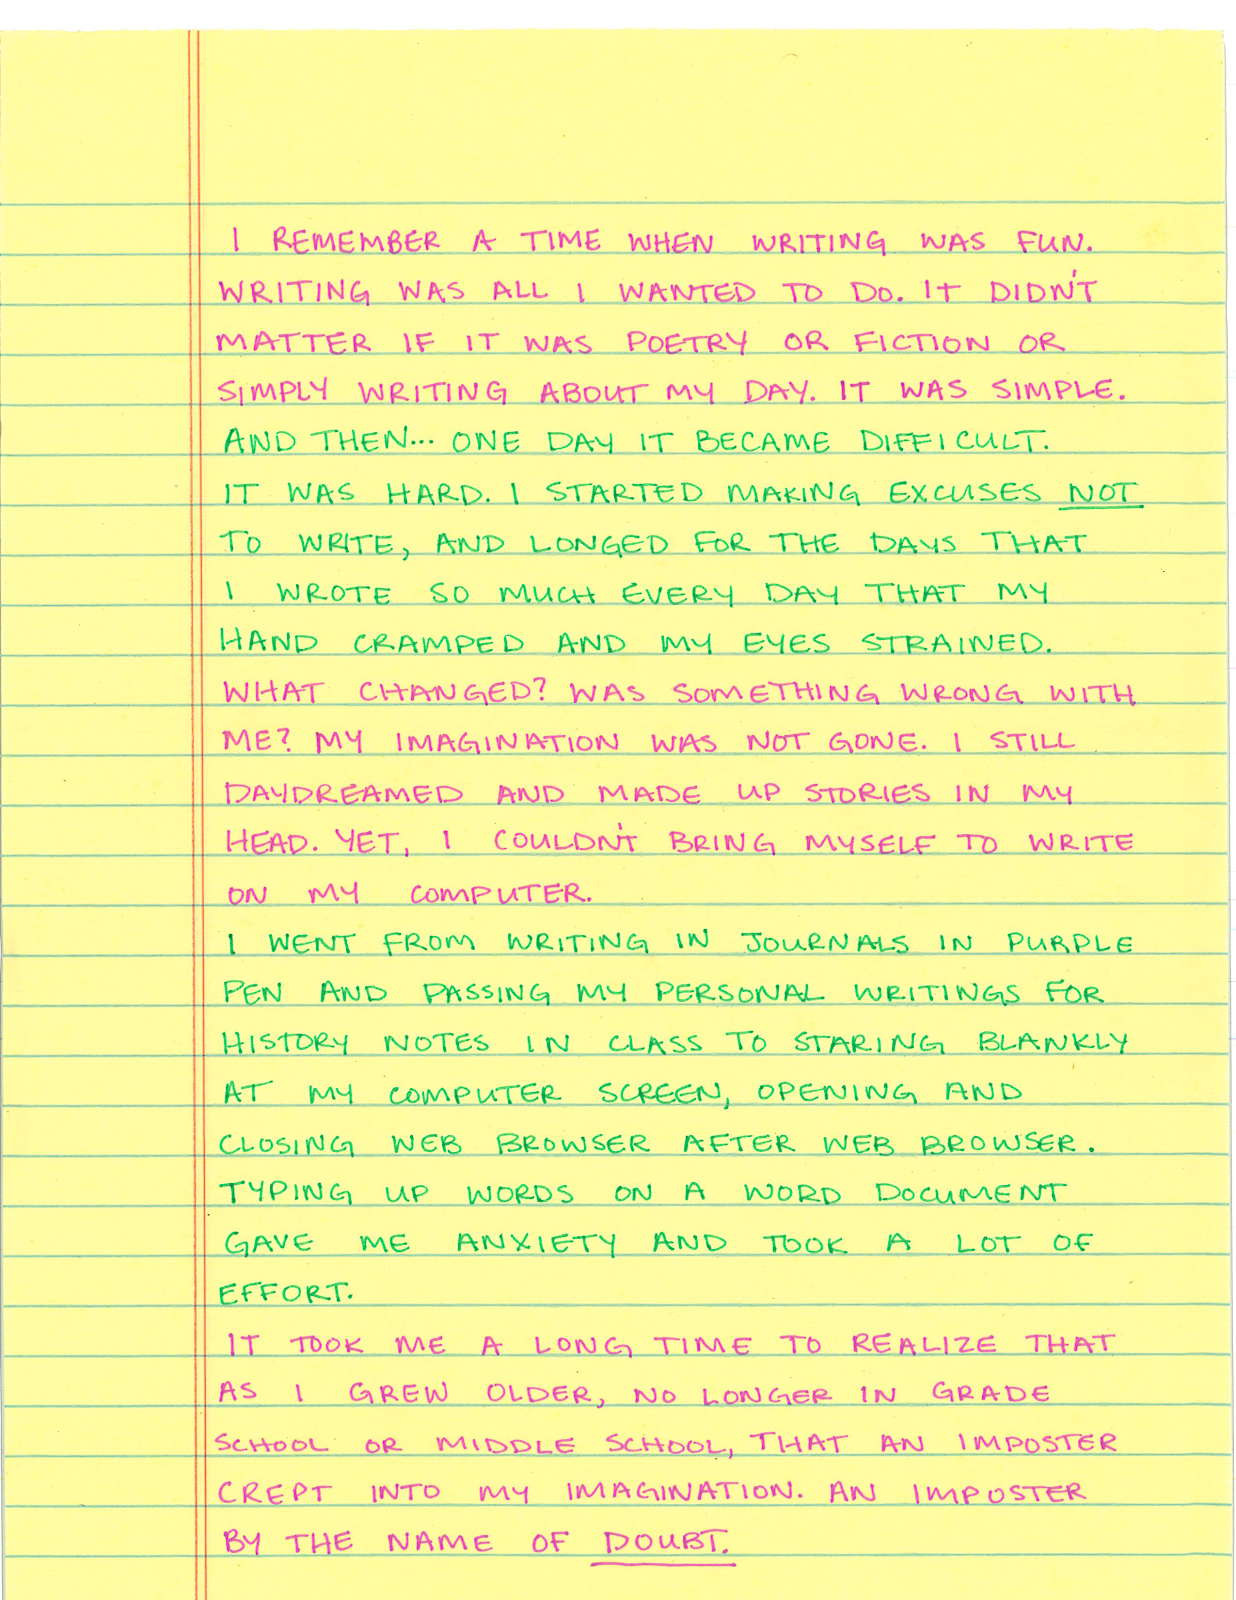 I REMEMBER A TIME WHEN WRITING WAS FUN.
WRITING WAS ALL I WANTED TO DO. IT DIDN'T
MATTER IF IT WAS POETRY OR FICTION OR
SIMPLY WRITING ABOUT MY DAY. IT WAS SIMPLE.
AND THEN... ONE DAY IT BECAME DIFFICULT.
IT WAS HARD. I STARTED MAKING EXCUSES NOT
TO WRITE, AND LONGED FOR THE DAYS THAT
I WROTE SO MUCH EVERY DAY THAT MY
HAND CRAMPED AND MY EYES STRAINED.
WHAT CHANGED? WAS SOMETHING WRONG WITH
ME? MY IMAGINATION WAS NOT GONE. I STILL
DAYDREAMED AND MADE UP STORIES IN MY
HEAD. YET, I COULDN'T BRING MYSELF TO WRITE
ON MY COMPUTER.
I WENT FROM WRITING IN JOURNALS IN PURPLE
PEN AND PASSING MY PERSONAL WRITINGS FOR
HISTORY NOTES IN CLASS TO STARING BLANKLY
AT MY COMPUTER SCREEN, OPENING AND
CLOSING WEB BROWSER AFTER WEB BROWSER.
TYPING UP WORDS ON A WORD DOCUMENT
GAVE ME ANXIETY AND TOOK A LOT OF
EFFORT.
IT TOOK ME A LONG TIME TO REALIZE THAT
AS I GREW OLDER, NO LONGER IN GRADE
SCHOOL OR MIDDLE SCHOOL, THAT AN IMPOSTER
CREPT INTO MY IMAGINATION. AN IMPOSTER
BY THE NAME OF DOUBT.